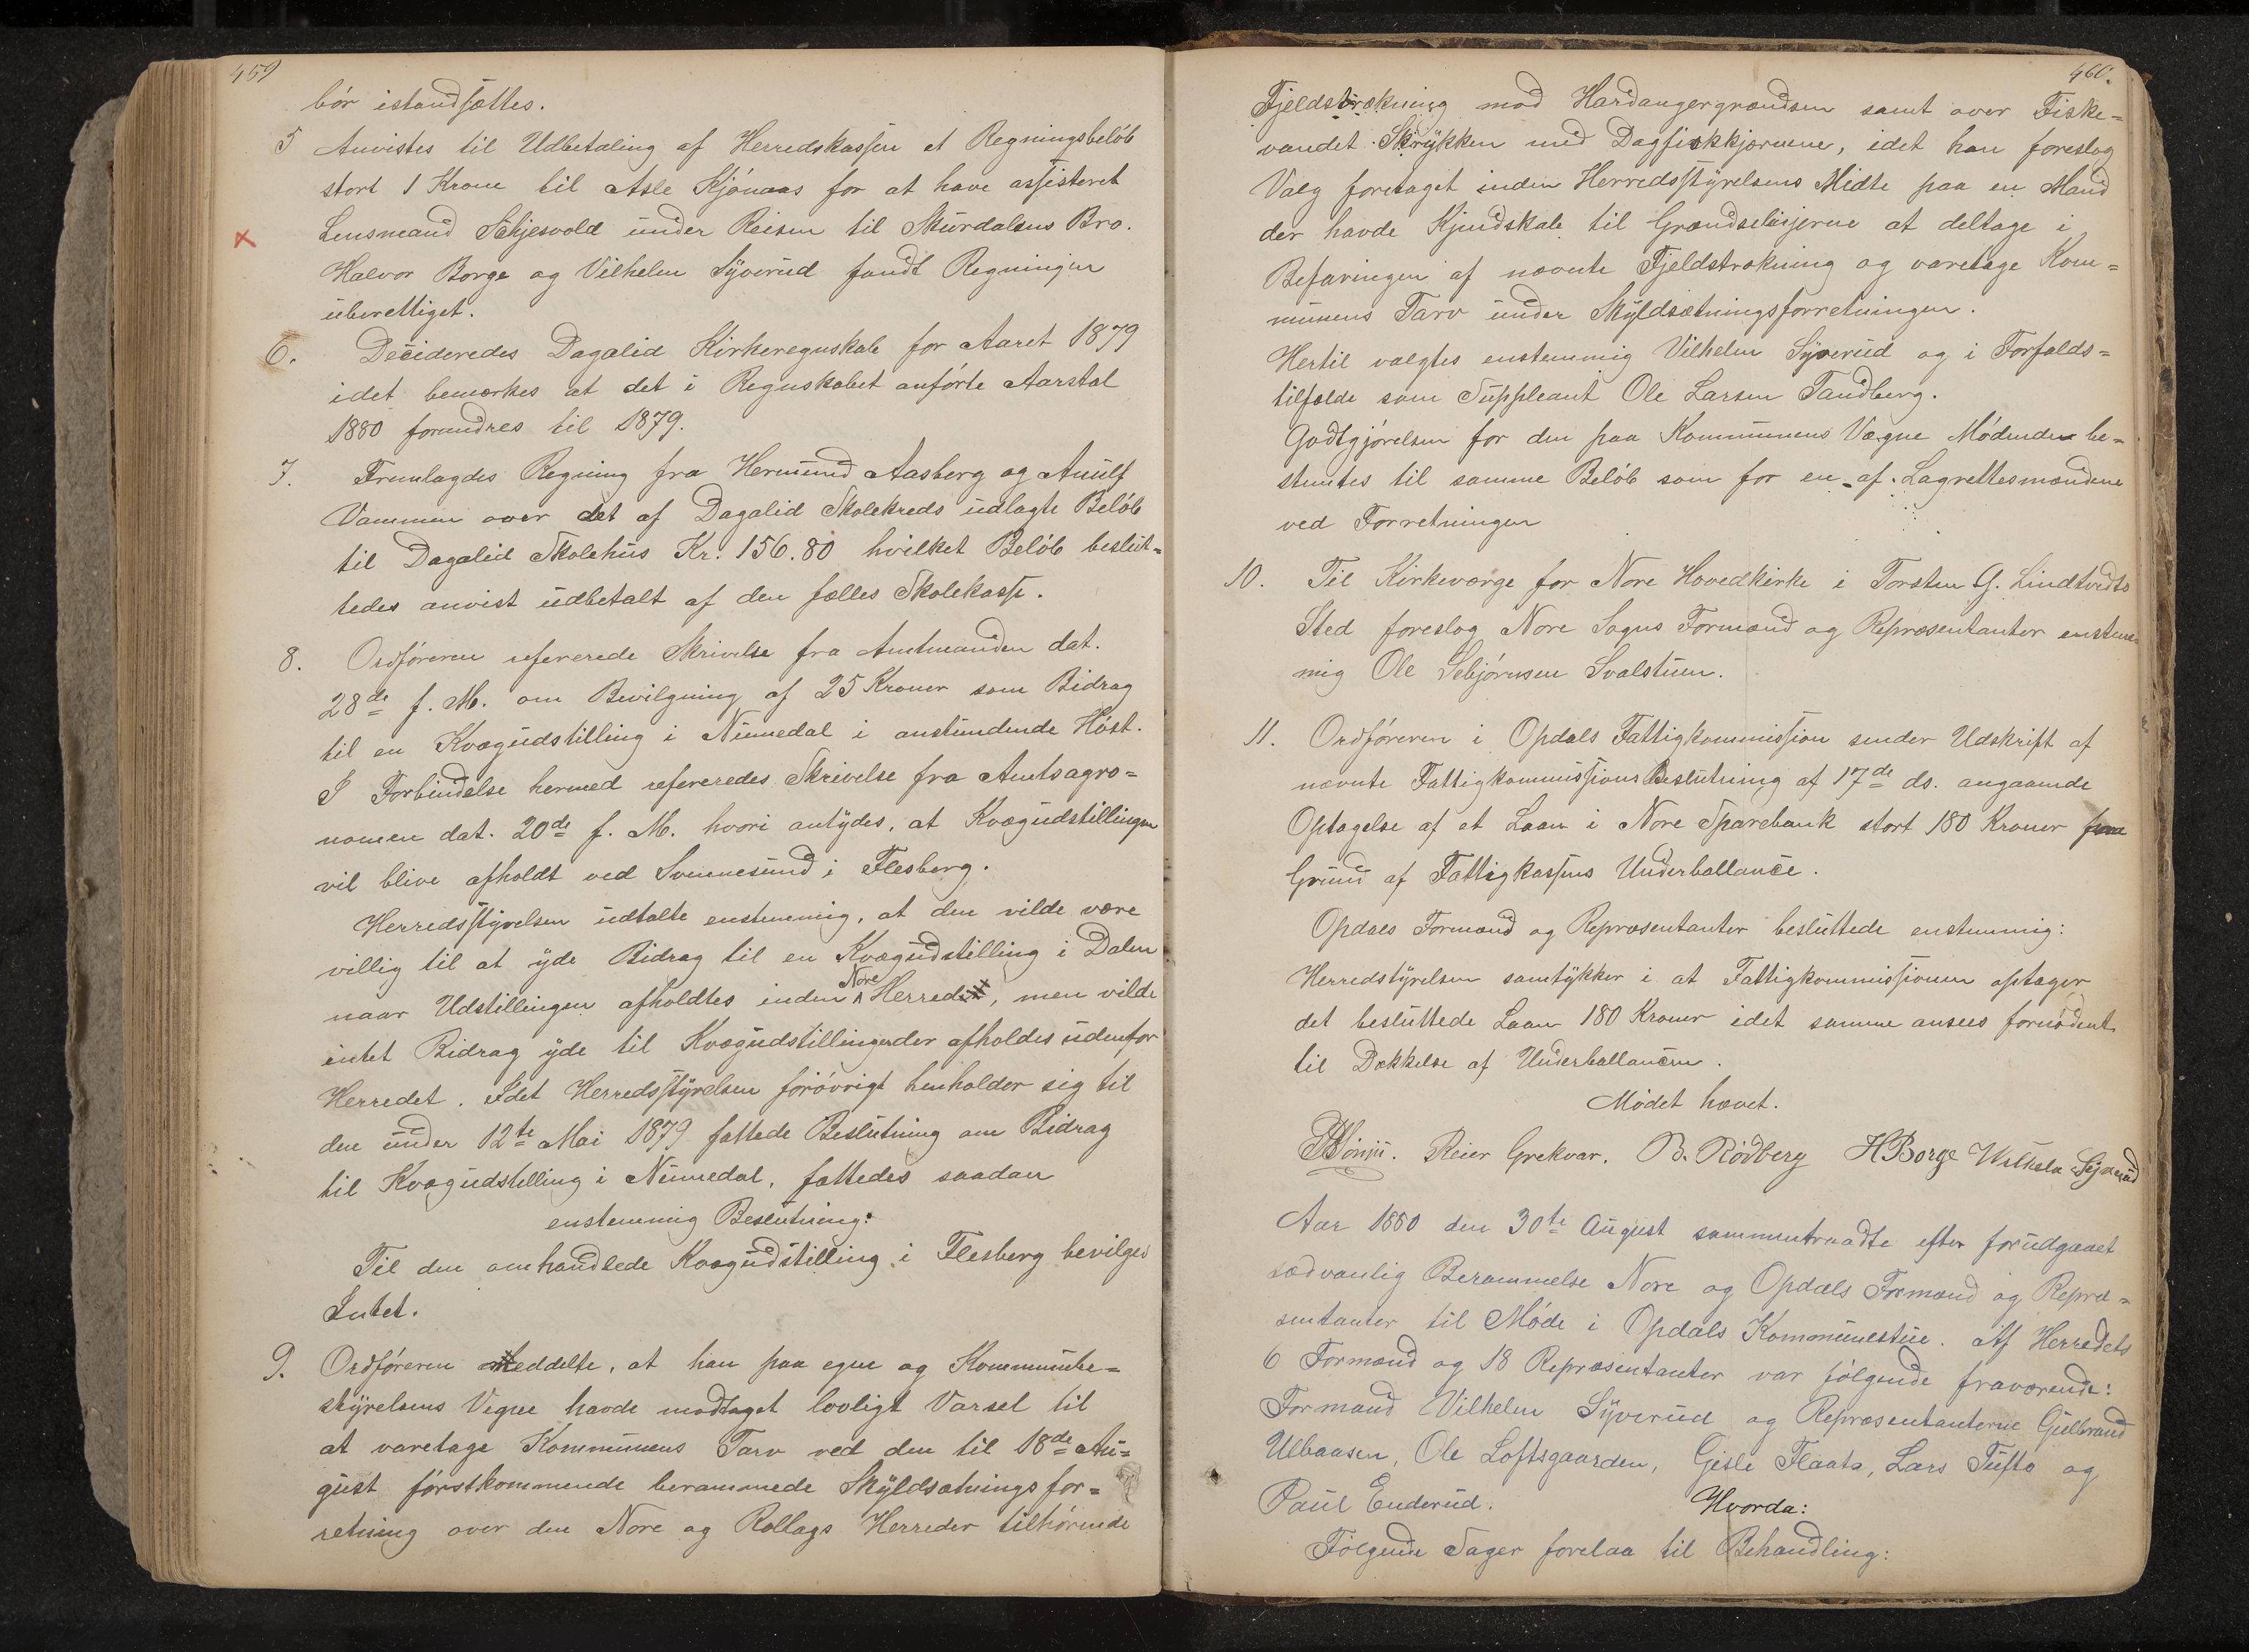 459
bör istandsættes.
5 Anvistes til Udbetaling af Herredskassen et Regningsbelöb
stort 1 Krone til Asle Kjönaas for at have assisteret
Lensmand Schjesvold under Reisen til Skurdalens Bro.
Halvor Borge og Vilhelm Syverud fandt Regningen
uberettiget.
6. Decideredes Dagalid Kirkeregnskab for Aaret 1879
idet bemærkes at det i Regnskabet anförte Aarstal
1880 forandres til 1879.
7. Fremlagdes Regning fra Hermund Aasberg og Anulf
Vammen over det af Dagalid Skolekreds udlagte Belöb
til Dagalid Skolehus Kr. 156.80 hvilket Belöb beslut=
tedes anvist udbetalt af den fælles Skolekasse.
8. Ordföreren refererede Skrivelse fra Amtmanden dat.
28de f. M. om Bevilgning af 25 Kroner som Bidrag
til en Kvægudstilling i Numedal i anstundende Höst.
I Forbindelse hermed refereredes Skrivelse fra Amtsagro=
nomen dat. 20de f. M. hvori antydes, at Kvægudstillingen
vil blive afholdt ved Svennesund i Flesberg.
Herredsstyrelsen udtalte enstemmig, at den vilde være
villig til at yde Bidrag til en Kvægudstilling i Dalen
naar Udstillingen afholdtes inden Nore Herred, men vilde
intet Bidrag yde til Kvægudstillinger der afholdes udenfor
Herredet. Idet Herredsstyrelsen forövrigt henholder sig til
den under 12te Mai 1879 fattede Beslutning om Bidrag
til Kvægudstilling i Numedal, fattedes saadan
enstemmig Beslutning:
Til den omhandlede Kvægudstilling i Flesberg bevilges
Intet.
9. Ordföreren meddelte, at han paa egne og Kommunebe=
styrelsens Vegne havde modtaget lovligt Varsel til
at varetage Kommunens Tarv ved den til 18de Au=
gust förstkommende berammede Skyldsætningsfor=
retning over den Nore og Rollags Herreder tilhörende
460.
Fjeldstrækning mod Hardangergrændsen samt over Fiske=
vandet Skrykken med Dagfiskkjærnene, idet han foreslog
Valg foretaget inden Herredsstyrelsens Midte paa en Mand
der havde Kjendskab til Grændselinjerne at deltage i
Befaringen af nævnte Fjeldstrækning og varetage Kom=
munens Tarv under Skyldsætningsforretningen.
Hertil valgtes enstemmig Vilhelm Syverud og i Forfalds=
tilfælde som Suppleant Ole Larsen Tandberg.
Godtgjörelsen for den paa Kommunens Vegne Mödende be=
stemtes til samme Belöb som for en af Lagrettesmændene
ved Forretningen
10. Til Kirkeværge for Nore Hovedkirke i Torsten G. Lindtvedts
Sted foreslog Nore Sogns Formænd og Repræsentanter enstem=
mig Ole Sebjörnsen Svalstuen.
11. Ordföreren i Opdals Fattigkommission sender Udskrift af
nævnte Fattigkommissions Beslutning af 17de ds. angaaende
Optagelse af et Laan i Nore Sparebank stort 180 Kroner paa
Grund af Fattigkassens Underballance.
Opdals Formænd og Repræsentanter besluttede enstemmig:
Herredstyrelsen samtykker i at Fattigkommissionen optager
det besluttede Laan 180 Kroner idet samme ansees fornödent
til Dækkelse af Underballancen.
Mödet hævet.
Reier Grekvar. B. Rödberg H Borge Wilhelm Syverud
Aar 1880 den 30te August sammentraadte efter forudgaaet
sædvanlig Berammelse Nore og Opdals Formænd og Repræ=
sentanter til Möde i Opdals Kommunestue. Af Herredets
6 Formænd og 18 Repræsentanter var fölgende fraværende:
Formand Vilhelm Syverud og Repræsentanterne Gulbrand
Ulbaasen, Ole Loftsgaarden, Gisle Flaata, Lars Tufto og
Paul Enderud. Hvorda:
Fölgende Sager forelaa til Behandling: